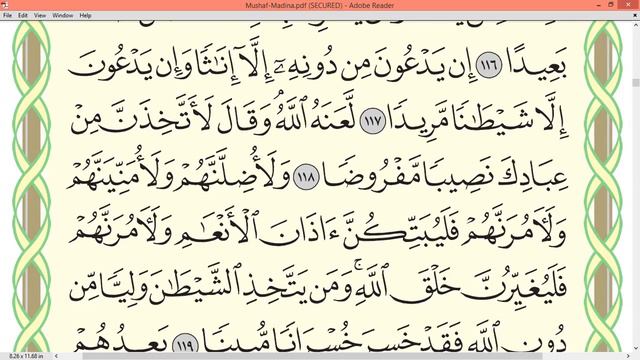 Mushaf-Madina.pdf (SECURED) - Adobe Reader
File Edit View Window Help
بَعِيدًا ١١٦ إِن يَدْعُونَ مِن دُونِهِۦٓ إِلَّآ إِنَٰثًا وَإِن يَدْعُونَ
إِلَّا شَيْطَٰنًا مَّرِيدًا ١١٧ لَّعَنَهُ ٱللَّهُۘ وَقَالَ لَأَتَّخِذَنَّ مِنْ
عِبَادِكَ نَصِيبًا مَّفْرُوضًا ١١٨ وَلَأُضِلَّنَّهُمْ وَلَأُمَنِّيَنَّهُمْ
وَلَءَامُرَنَّهُمْ فَلَيُبَتِّكُنَّ ءَاذَانَ ٱلْأَنْعَٰمِ وَلَءَامُرَنَّهُمْ
فَلَيُغَيِّرُنَّ خَلْقَ ٱللَّهِۚ وَمَن يَتَّخِذِ ٱلشَّيْطَٰنَ وَلِيًّا مِّن
دُونِ ٱللَّهِ فَقَدْ خَسِرَ خُسْرَانًا مُّبِينًا ١١٩ يَعِدُهُمْ
8.26 x 11.68 in